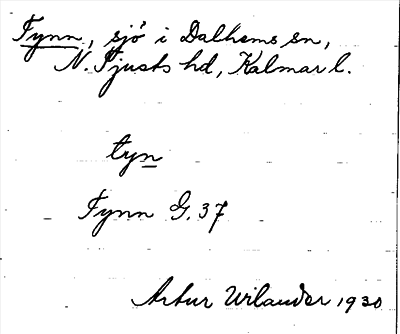 Tynn, sjö i Dalhems sn,
N. Tjusts hd, Kalmar l.
tyn
Tynn G. 37
Artur Wilander 1930